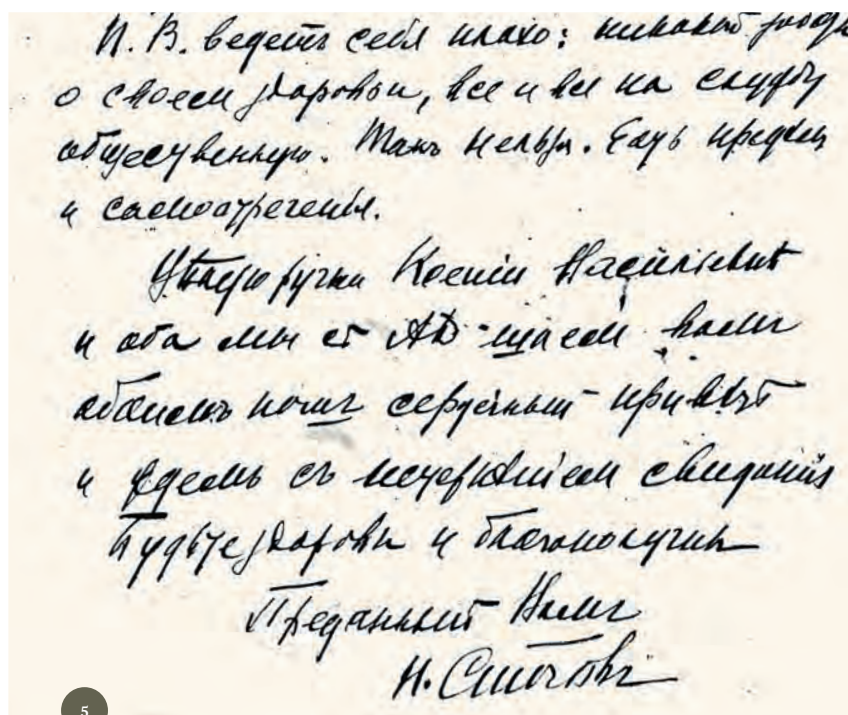 П. В. ведетъ себя плохо: никакой
о своем здоровьи, все и вся на службу
общественную. Такъ нельзя. Есть предел
и самоотреченья.
Цѣлую ручки Ксеніи Васильевнѣ
и оба мы съ шлем вамъ
обоимъ нашъ сердечный привѣт
и ждемъ съ нетерпѣніем свиданія
Будьте здоровы и благополучны
Преданный Вамъ
Н.
5